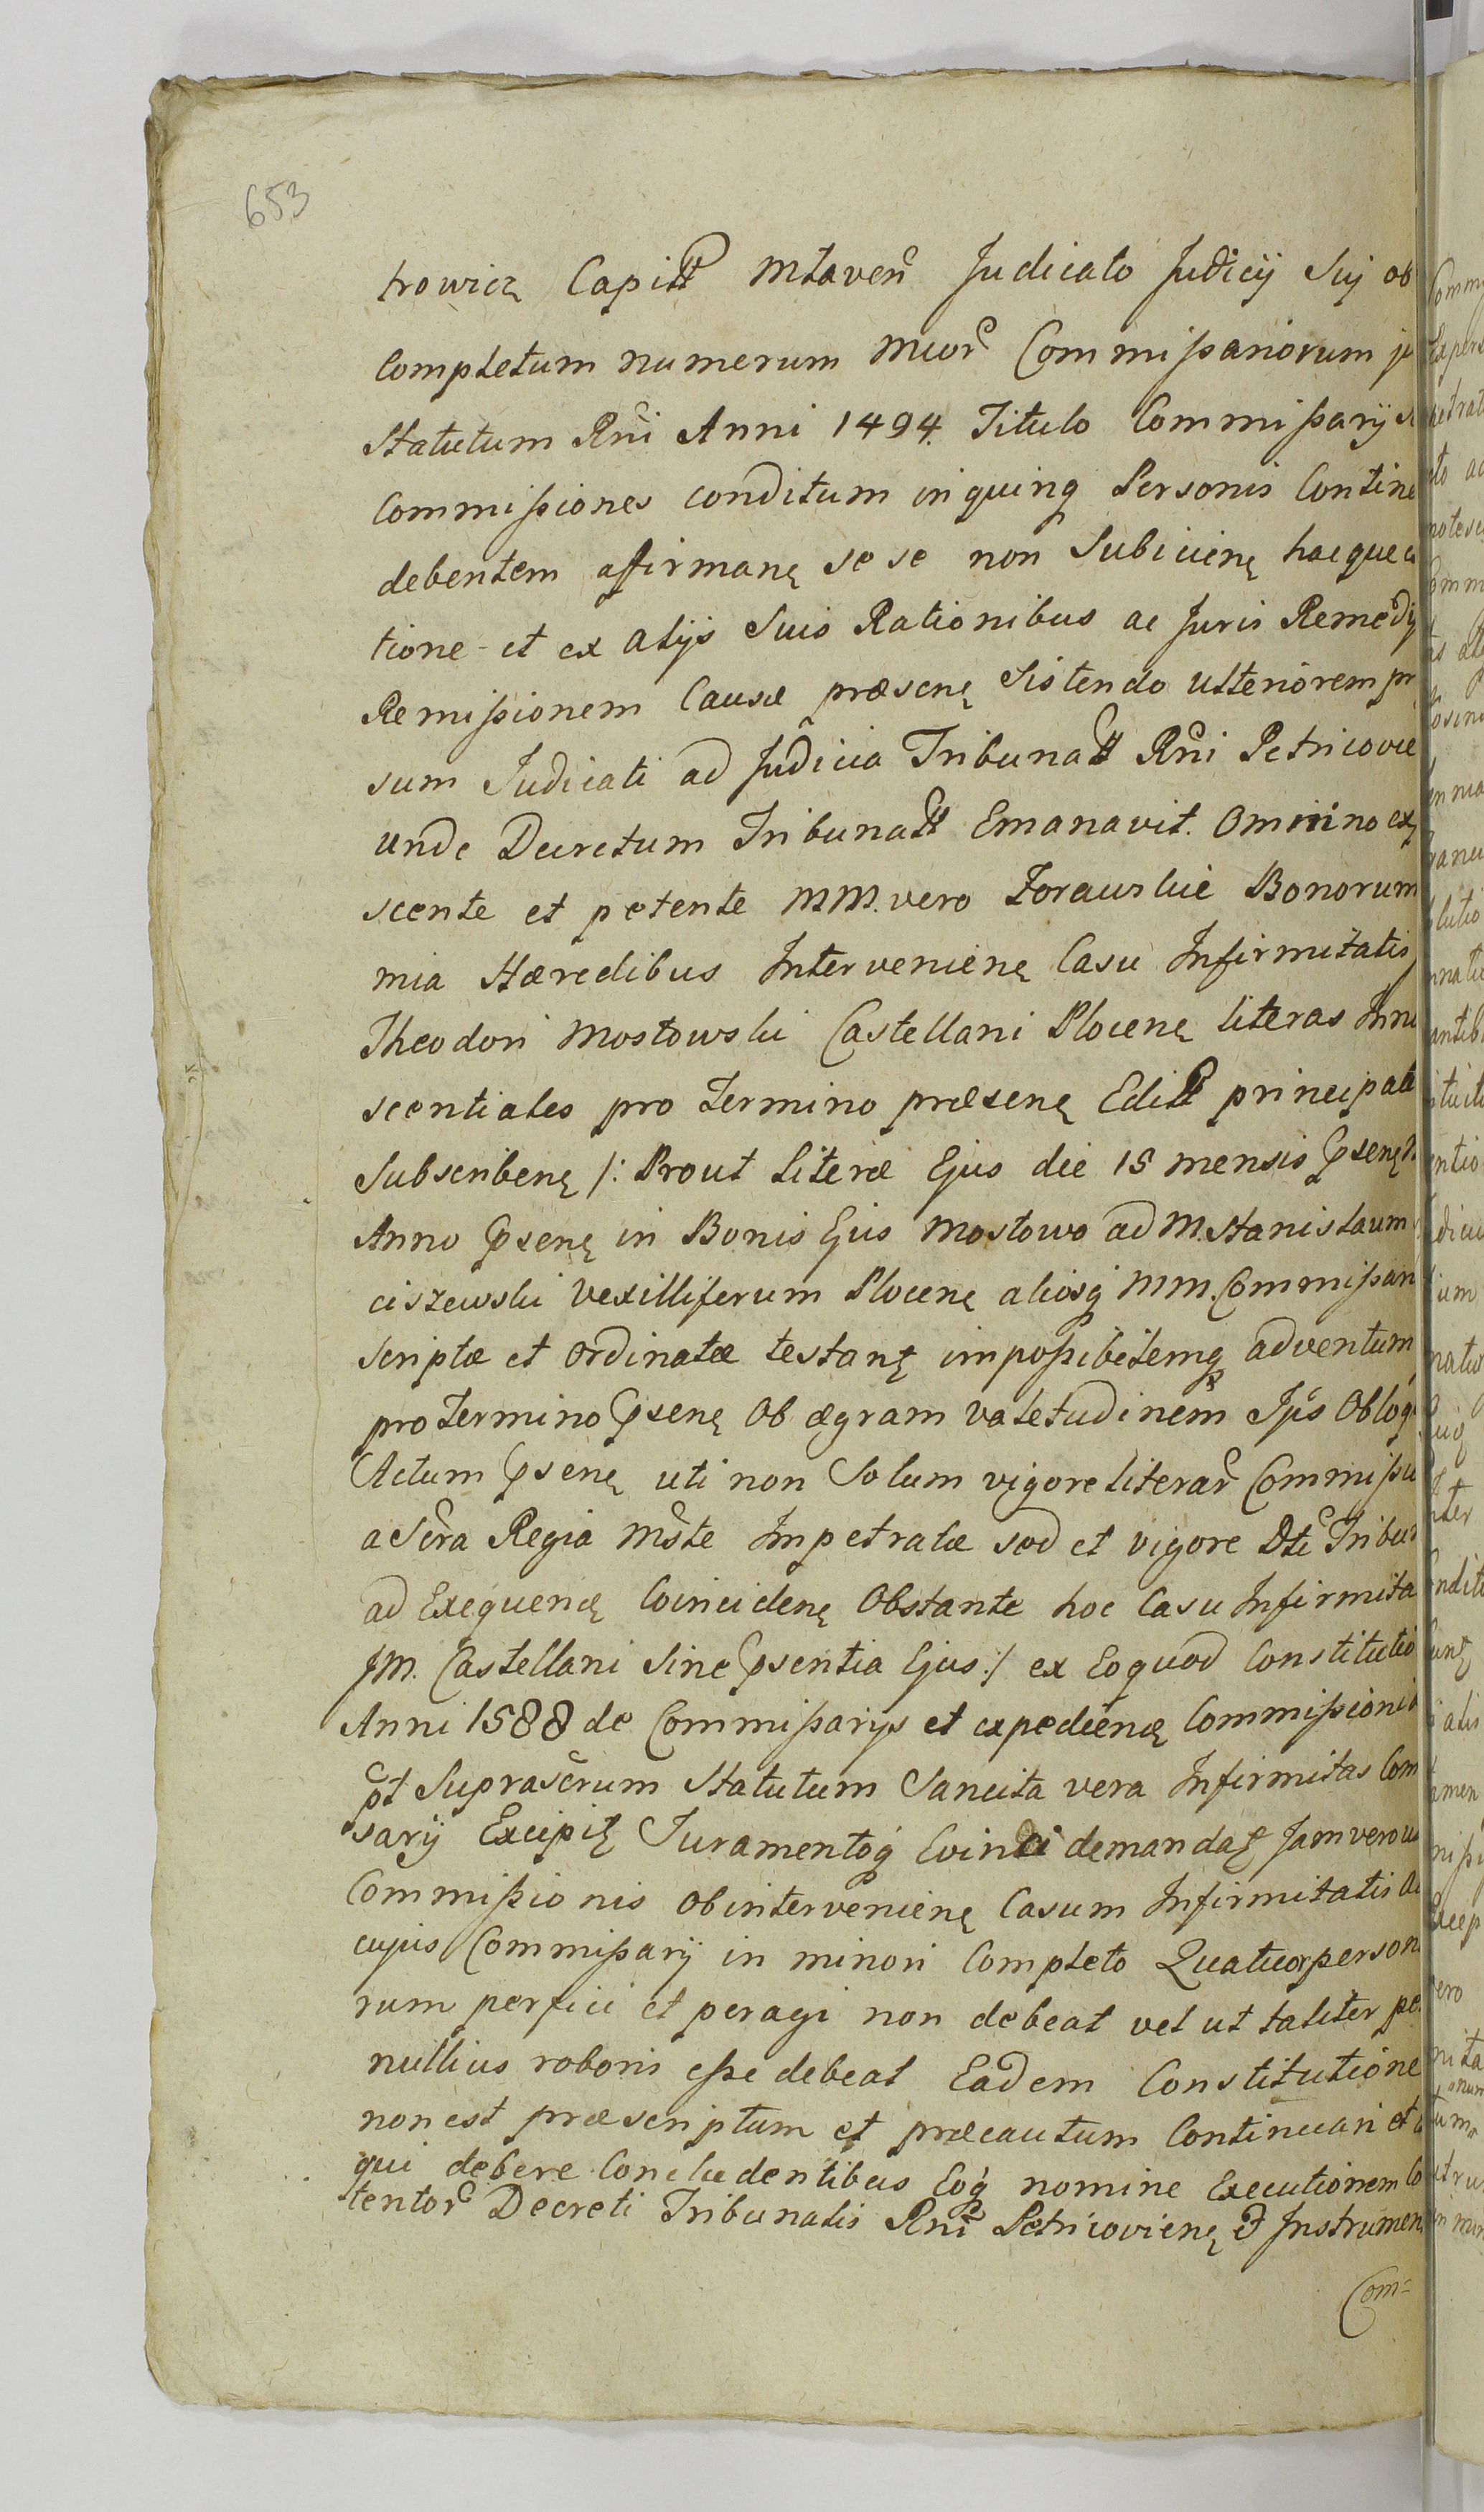 653
trowicz Capitt Mlaven Judicato Judicij Suj ob
Completum numerum Mior Commissariorum ju
Statutum Rni Anni 1494. Titulo Commissarij
Commissiones conditum in quinq Personis Contine
debentem affirmanę se se non Subiicienę hacque
tione et ex alijs Suis Rationibus ac Juris Remedij
Remissionem Causæ præsenę Sistendo ulteriorem pr
sum Judicati ad Judicia Tribunatt Rni Petricovie
unde Decretum Tribunatt Emanavit. Omnino
scente et petente MM. vero Zorawskie Bonorum
mia Hæredibus Intervenienę Casu Infirmitatis
Theodori Mostowski Castellani Plocenę literas Inno
scentiales pro Termino præsenę Editt principale
Subscribenę /: Prout Literæ Ejus die 15 mensis psenę
Anno psenę in Bonis Ejus Mostowo ad M. Stanislaum
ciszewski Vexilliferum Plocenę aliosq MM. Commissari
Scriptæ et Ordinatæ testantę impossibilemq adventum
pro Termino psenę Ob ægram valetudinem Ips Obloq
Actum psenę uti non Solum vigore literar Commissu
a Scra Regia Mste Impetratæ sed et vigore Dti Tribun
ad Exequenę Coincidenę Obstante hoc Casu Infirmita
JM. Castellani Sine psentia Ejus :/ ex Eo quod Constitutio
Anni 1588 de Commissarijs et expedienę Commissionib
pt Suprascrum Statutum Sancita vera Infirmitas Com
sarij Excipit Juramentoq Evinci demandat Jam vero
Commissionis ob intervenienę Casum Infirmitatis
cujus Commissarij in minori Completo Quatuor person
rum perfici et peragi non debeat vel ut taliter pe
nullius roboris esse debeat Eadem Constitutione
non est præscriptum et præcautum Continuari et
qui debere Concludentibus Eoq nomine Executionem Co
tentor Decreti Tribunalis Rni Petricovienę & Instrumen
Com=